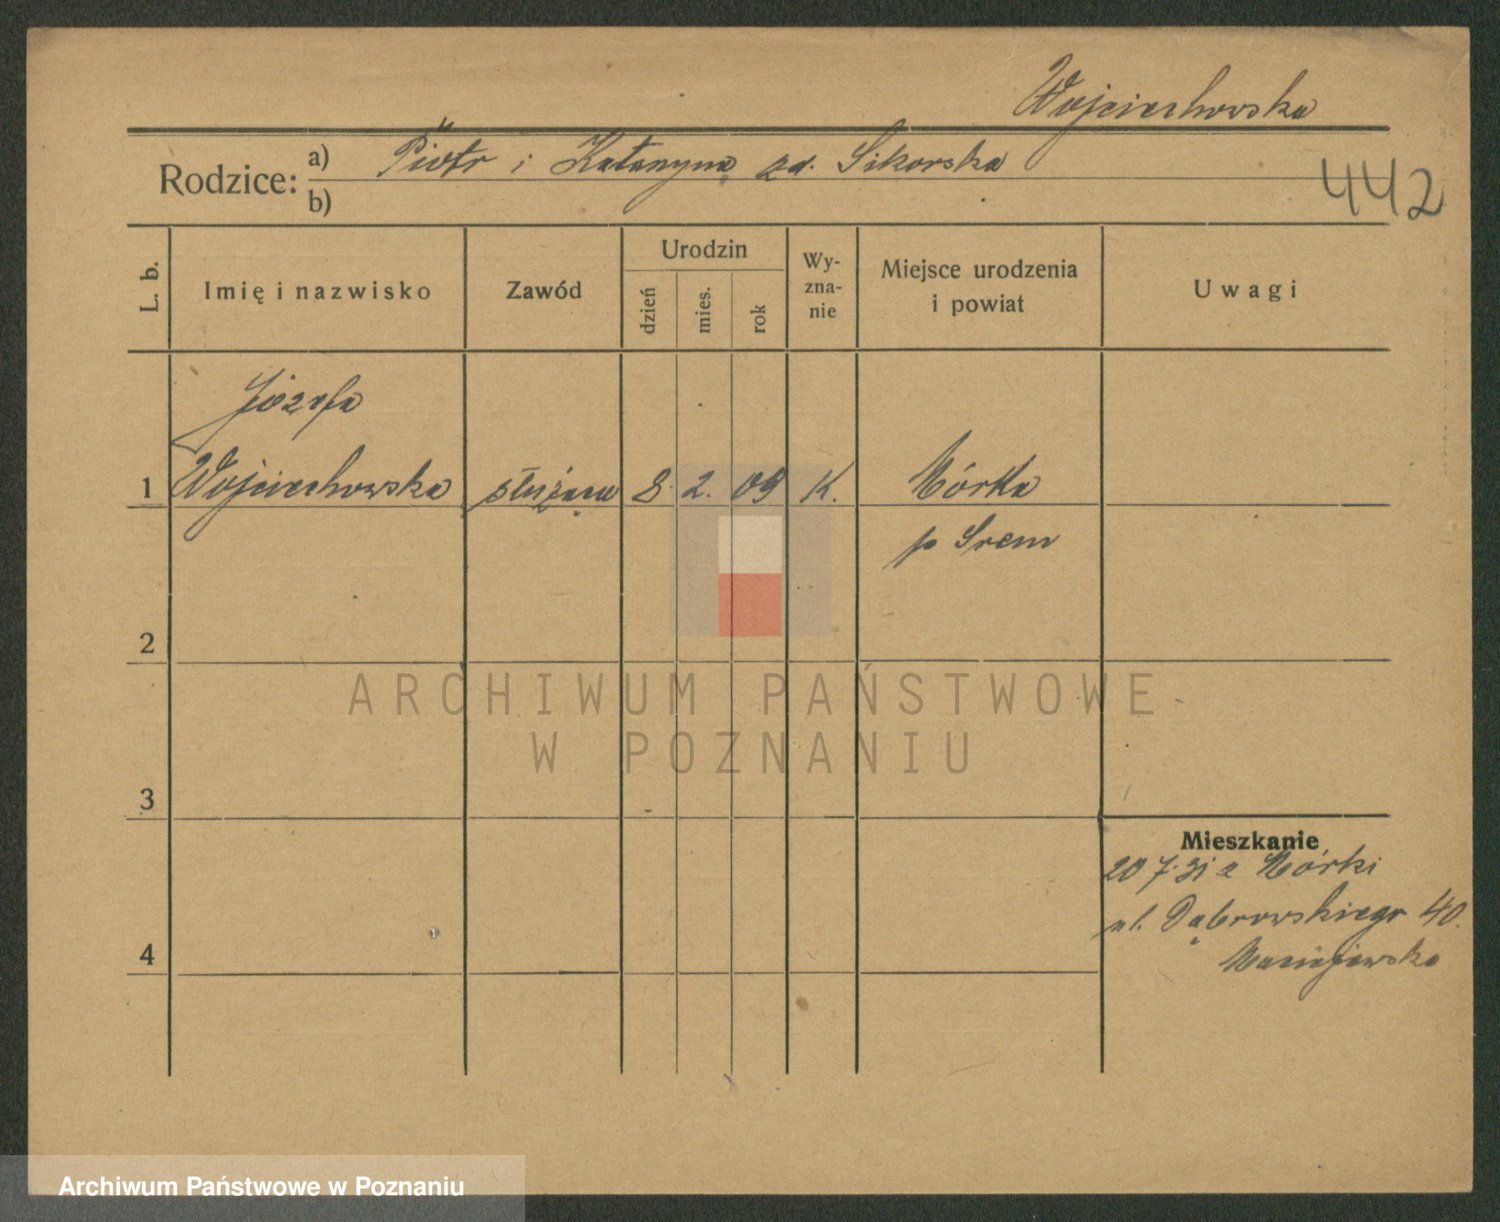 Wojciechowska
Rodzice: a) Piotr i Katarzyna zd. Sikorska
b)
442
L. b.
Imię i nazwisko
Zawód
Urodzin
dzień
mies.
rok
Wy-
zna-
nie
Miejsce urodzenia
i powiat
Uwagi
Józefa
1 Wojciechowska służąca 8. 2. 09 K. Mórka
p Śrem
2
3
4
Mieszkanie
20 7.31 z Mórki
ul. Dąbrowskiego 40.
Maciejewska
ARCHIWUM PAŃSTWOWE
W POZNANIU
Archiwum Państwowe w Poznaniu